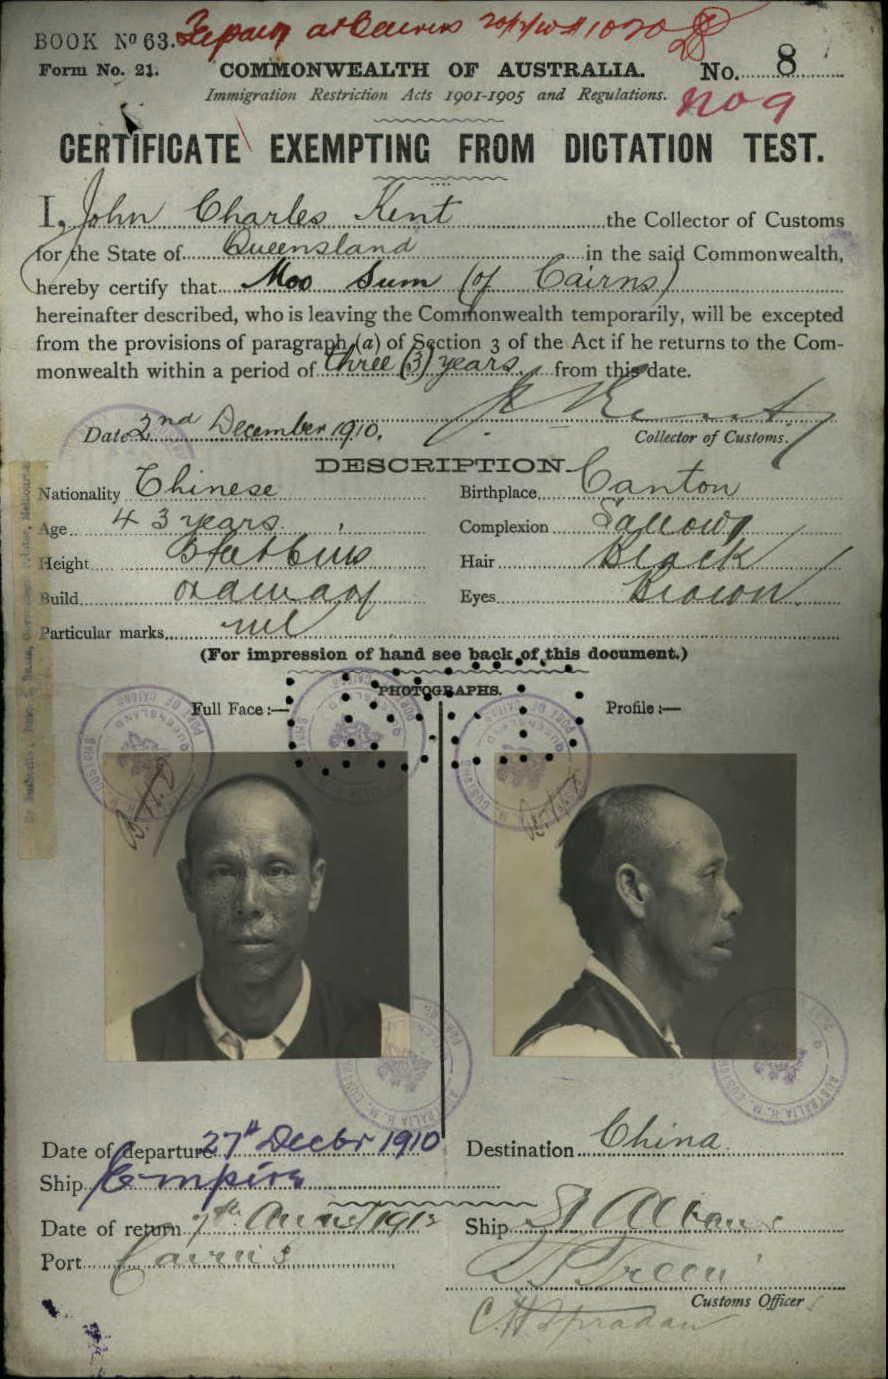 BOOK No 63.
at Cairns
Form No. 21.
COMMONWEALTH OF AUSTRALIA.
No. 8
Immigration Restriction Acts 1901-1905 and Regulations.
No 9
CERTIFICATE EXEMPTING FROM DICTATION TEST.
I, John Charles Kent the Collector of Customs
for the State of Queensland in the said Commonwealth,
hereby certify that Moo Sum (of Cairns)
hereinafter described, who is leaving the Commonwealth temporarily, will be excepted
from the provisions of paragraph (a) of Section 3 of the Act if he returns to the Com-
monwealth within a period of three (3) years from this date.
Date 2nd December 1910.
Collector of Customs.
DESCRIPTION
Nationality Chinese
Birthplace Canton
Age 43 years
Complexion Sallow
Height
Hair Black
Build ordinary
Eyes Brown
Particular marks nil
(For impression of hand see back of this document.)
PHOTOGRAPHS.
Full Face:—
Profile:—
Date of departure 27th Decbr 1910
Destination China
Ship Empire
Date of return 7th August 1912
Ship St Albans
Port Cairns
Customs Officer